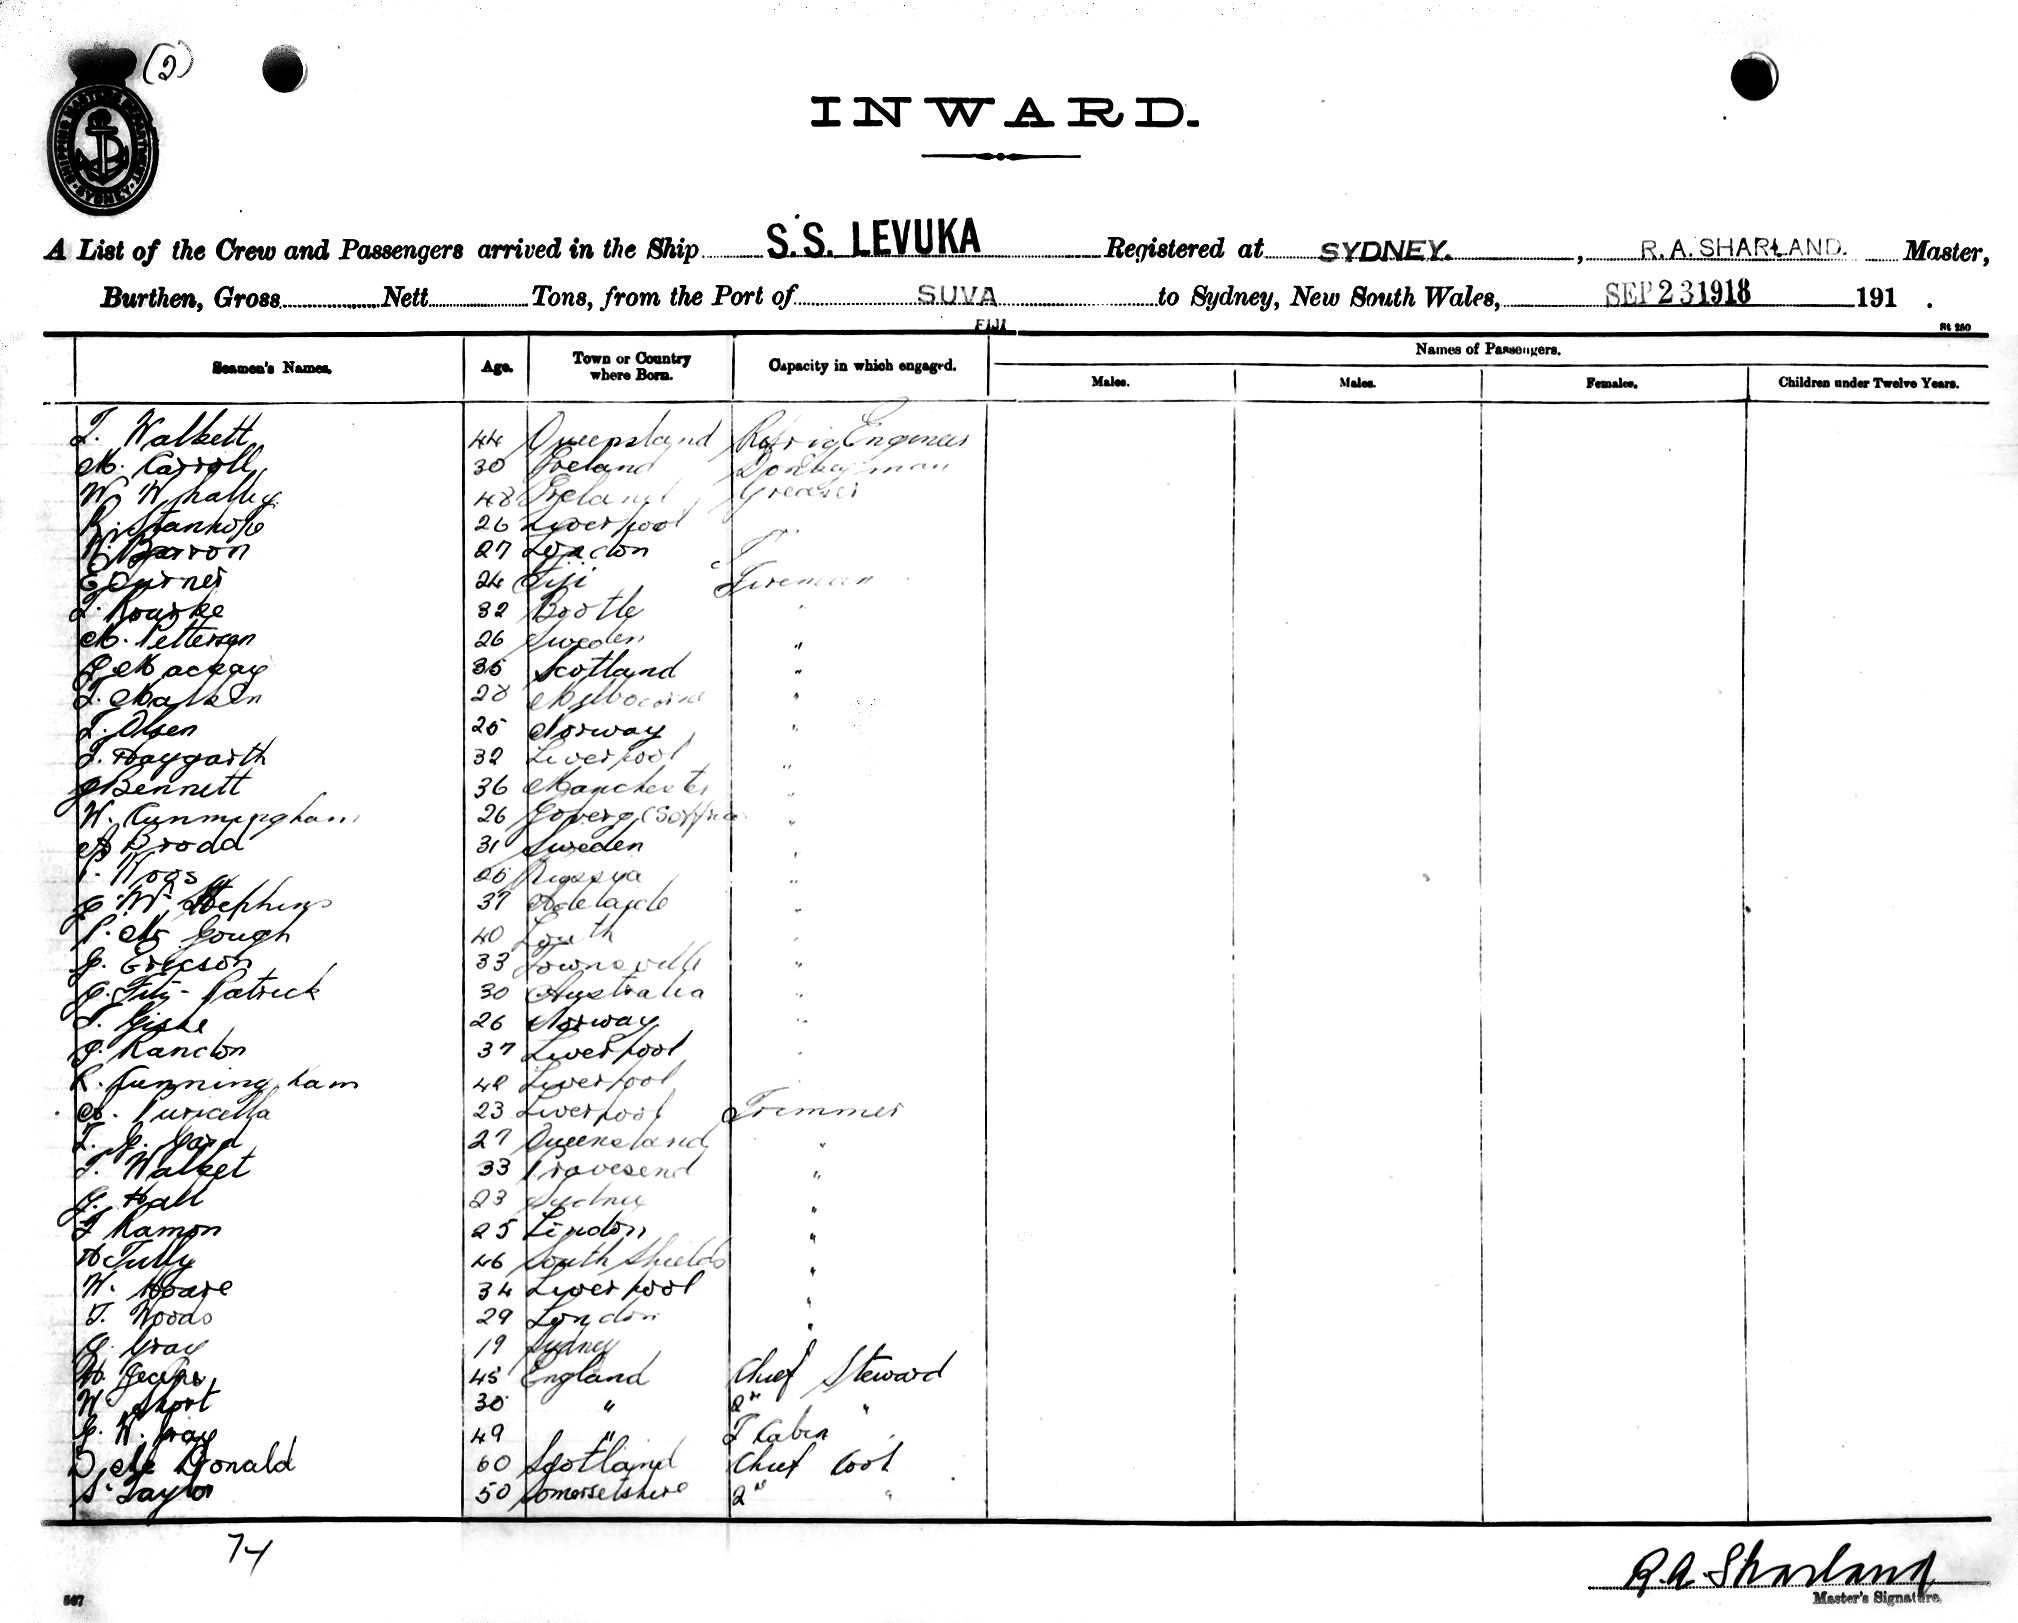 (2)
SHIPPING MASTERS DEPARTMENT SYDNEY
INWARD.
A List of the Crew and Passengers arrived in the Ship S.S. LEVUKA Registered at SYDNEY. , R. A. SHARLAND. Master,
Burthen, Gross Nett Tons, from the Port of SUVA to Sydney, New South Wales, SEP 23 1918 191 .
FIJI
St 280
Seamen's Names. Age. Town or Country where Born. Capacity in which engaged. Names of Passengers.
Males. Males. Females. Children under Twelve Years.
T. Walkett 44 Queensland Refrig Engineer
M. Carroll 30 Ireland Donkeyman
W Whalley 48 Ireland Greaser
R. Stanhope 26 Liverpool
W. Barron 27 London
24 Fiji Fireman
T. Rourke 32 Bootle
M. Petterson 26 Sweden "
J Mackay 35 Scotland "
28 Melbourne "
T. Olsen 25 Norway "
T. Haygarth 32 Liverpool "
J Bennett 36 Manchester "
W. Cunningham 26 "
A Brodd 31 Sweden "
26 Russia "
E. W. Stephens 37 Adelaide "
P. Mc Gough 40 Louth "
G. Ericson 33 Townsville "
C. Fitz-Patrick 30 Australia "
26 Norway "
J. Rancon 37 Liverpool "
R. Cunningham 42 Liverpool
A. Puricella 23 Liverpool Trimmer
27 Queensland "
T. Walket 33 Gravesend "
G. Hall 23 Sydney "
F Ramon 25 London "
H Tully 46 South Shields "
W. Hoare 34 Liverpool "
T. Woods 29 London "
G. Gray 19 Sydney
45 England Chief Steward
W Short 30 " 2" "
G. W. Gray 49 " F Cabin
D Mc Donald 60 Scotland Chief Cook
S. Taylor 50 Somersetshire 2" "
74
R. A. Sharland
Master's Signature.
567